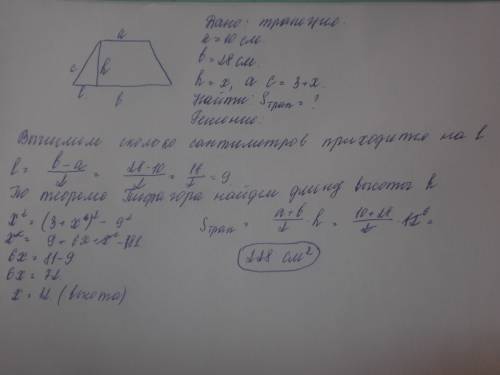 a
c
h
l
b
Дано: трапеция.
a = 10 см.
b = 28 см.
h = x, а c = 3+x.
Найти: Sтрап = ?
Решение:
Вычислим сколько сантиметров приходится на l
l = (b-a)/2 = (28-10)/2 = 18/2 = 9
По теореме Пифагора найдем длину высоты h
x² = (3+x)² - 9²
x² = 9 + 6x + x² - 81
6x = 81-9
6x = 72
x = 12 (высота)
Sтрап = (a+b)/2 h = (10+28)/2 · 12 =
228 см²